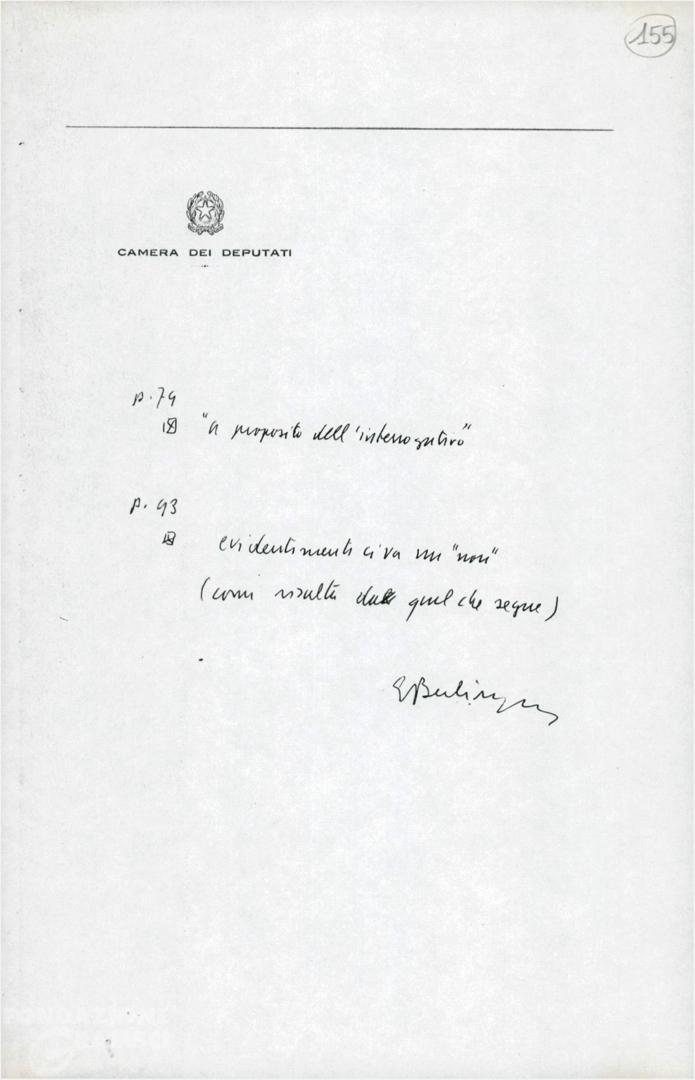 155
CAMERA DEI DEPUTATI
p. 79
"a proposito dell'interrogativo"
p. 93
evidentemente ci va un "non"
(come risulta da quel che segue)
EBerlinguer